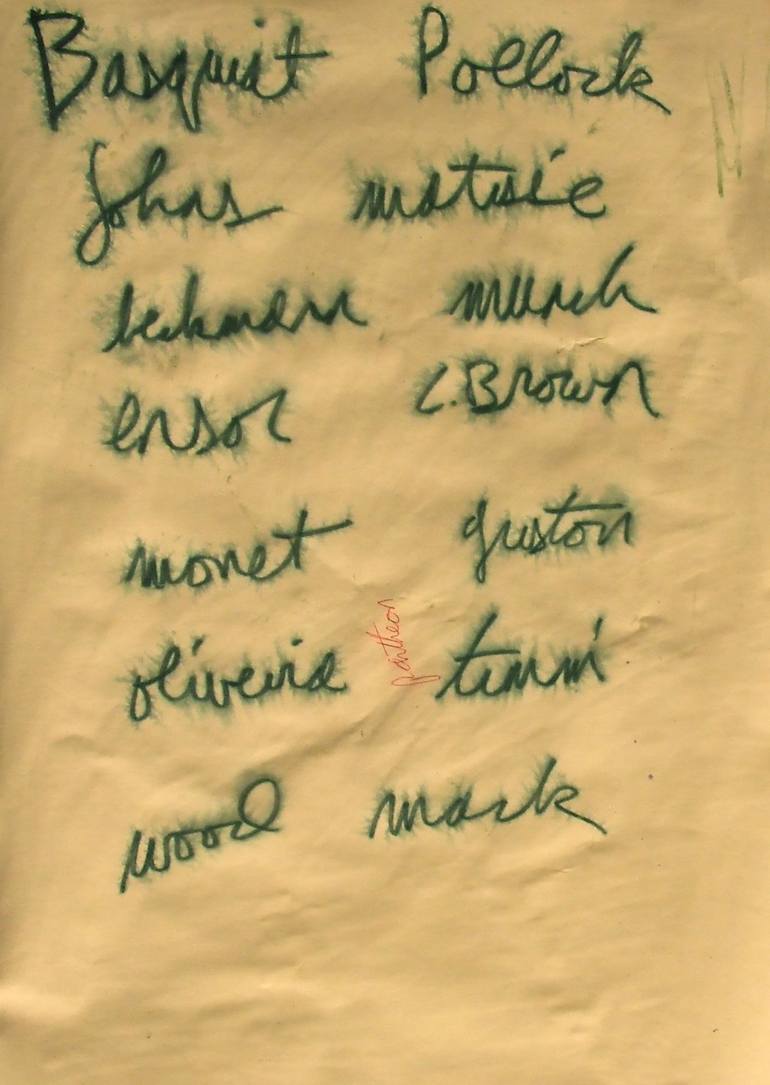 Basquiat Pollock
Johns matisse
beckmann munch
ensor C.Brown
monet guston
pantheon
oliveira
wood mark